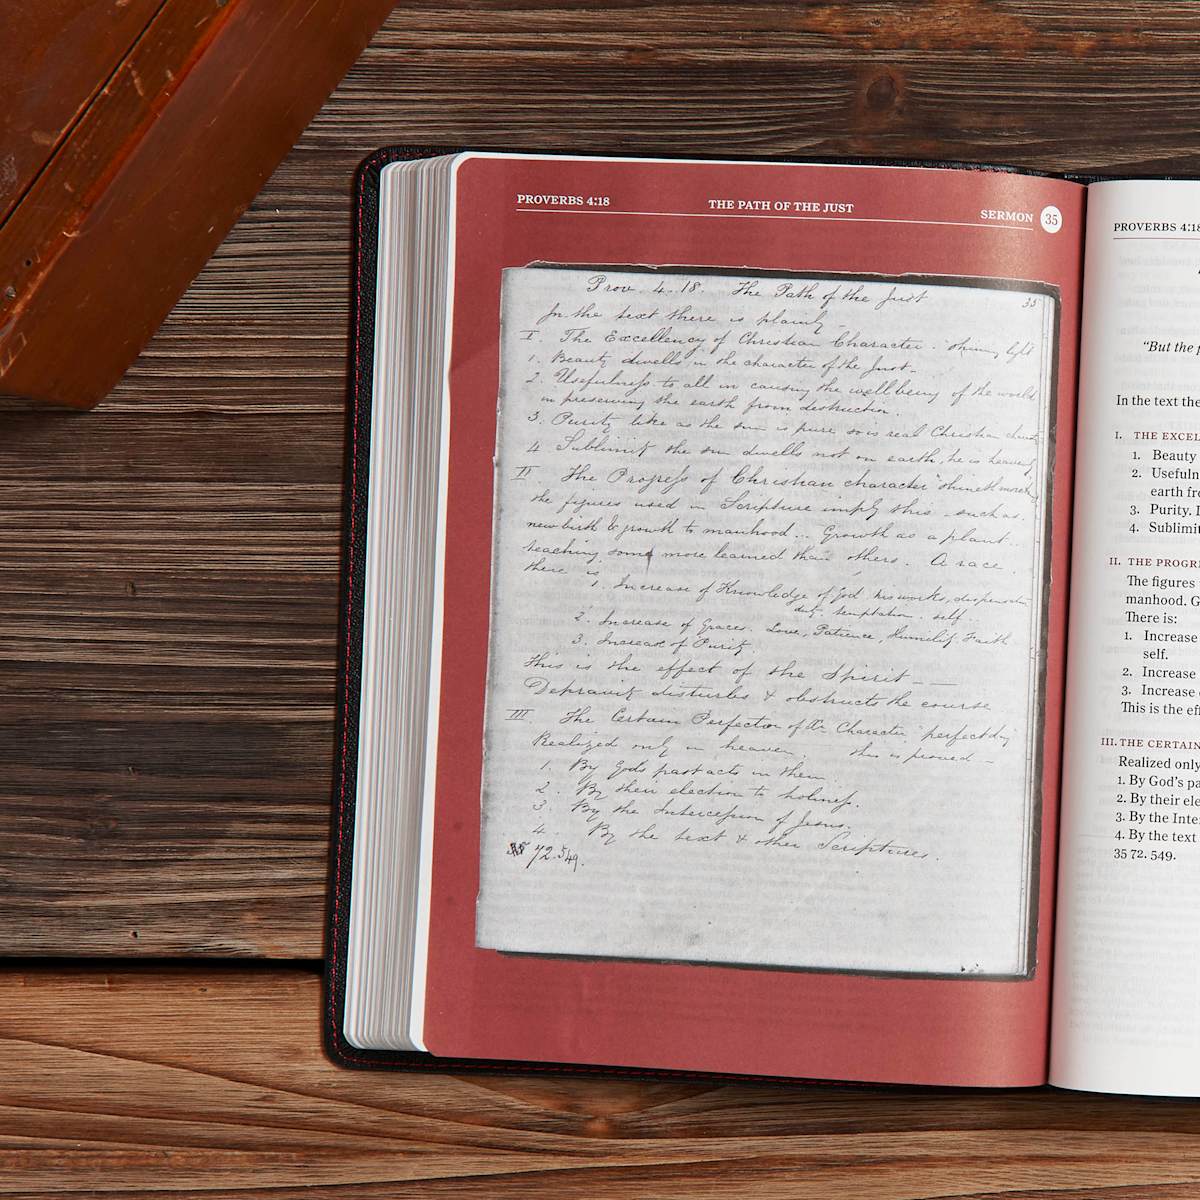 PROVERBS 4:18 THE PATH OF THE JUST SERMON 35
Prov. 4.18. The Path of the Just 35
In the text there is plainly
I. The Excellency of Christian Character. "shining light
1. Beauty dwells in the character of the Just.
2. Usefulness to all in causing the well being of the world
in preserving the earth from destruction.
3. Purity like as the sun is pure, so is real Christian
4 Sublimity the sun dwells not on earth, he is heavenly
II. The Progress of Christian character "shineth more
the figures used in Scripture imply this such as.
new birth & growth to manhood... Growth as a plant...
teaching some more learned than others. A race.
there is
1. Increase of Knowledge of God his works, dispensation
duty. temptation. self..
2. Increase of Graces. Love, Patience, Humility, Faith
3. Increase of Purity.
This is the effect of the Spirit — —
Depravity disturbs & obstructs the course.
III. The Certain Perfection of the Character. "perfect day
Realized only in heaven. this is proved —
1. By God's past acts in them.
2. By their election to holiness.
3. By the Intercession of Jesus.
4. By the text & other Scriptures.
72.549.
PROVERBS 4:18
"But the
In the text the
I. THE EXCEL
1. Beauty
2. Usefuln
earth fro
3. Purity. I
4. Sublimit
II. THE PROGR
The figures
manhood. G
There is:
1. Increase
self.
2. Increase
3. Increase
This is the eff
III. THE CERTAIN
Realized only
1. By God's pa
2. By their ele
3. By the Inter
4. By the text
35 72. 549.